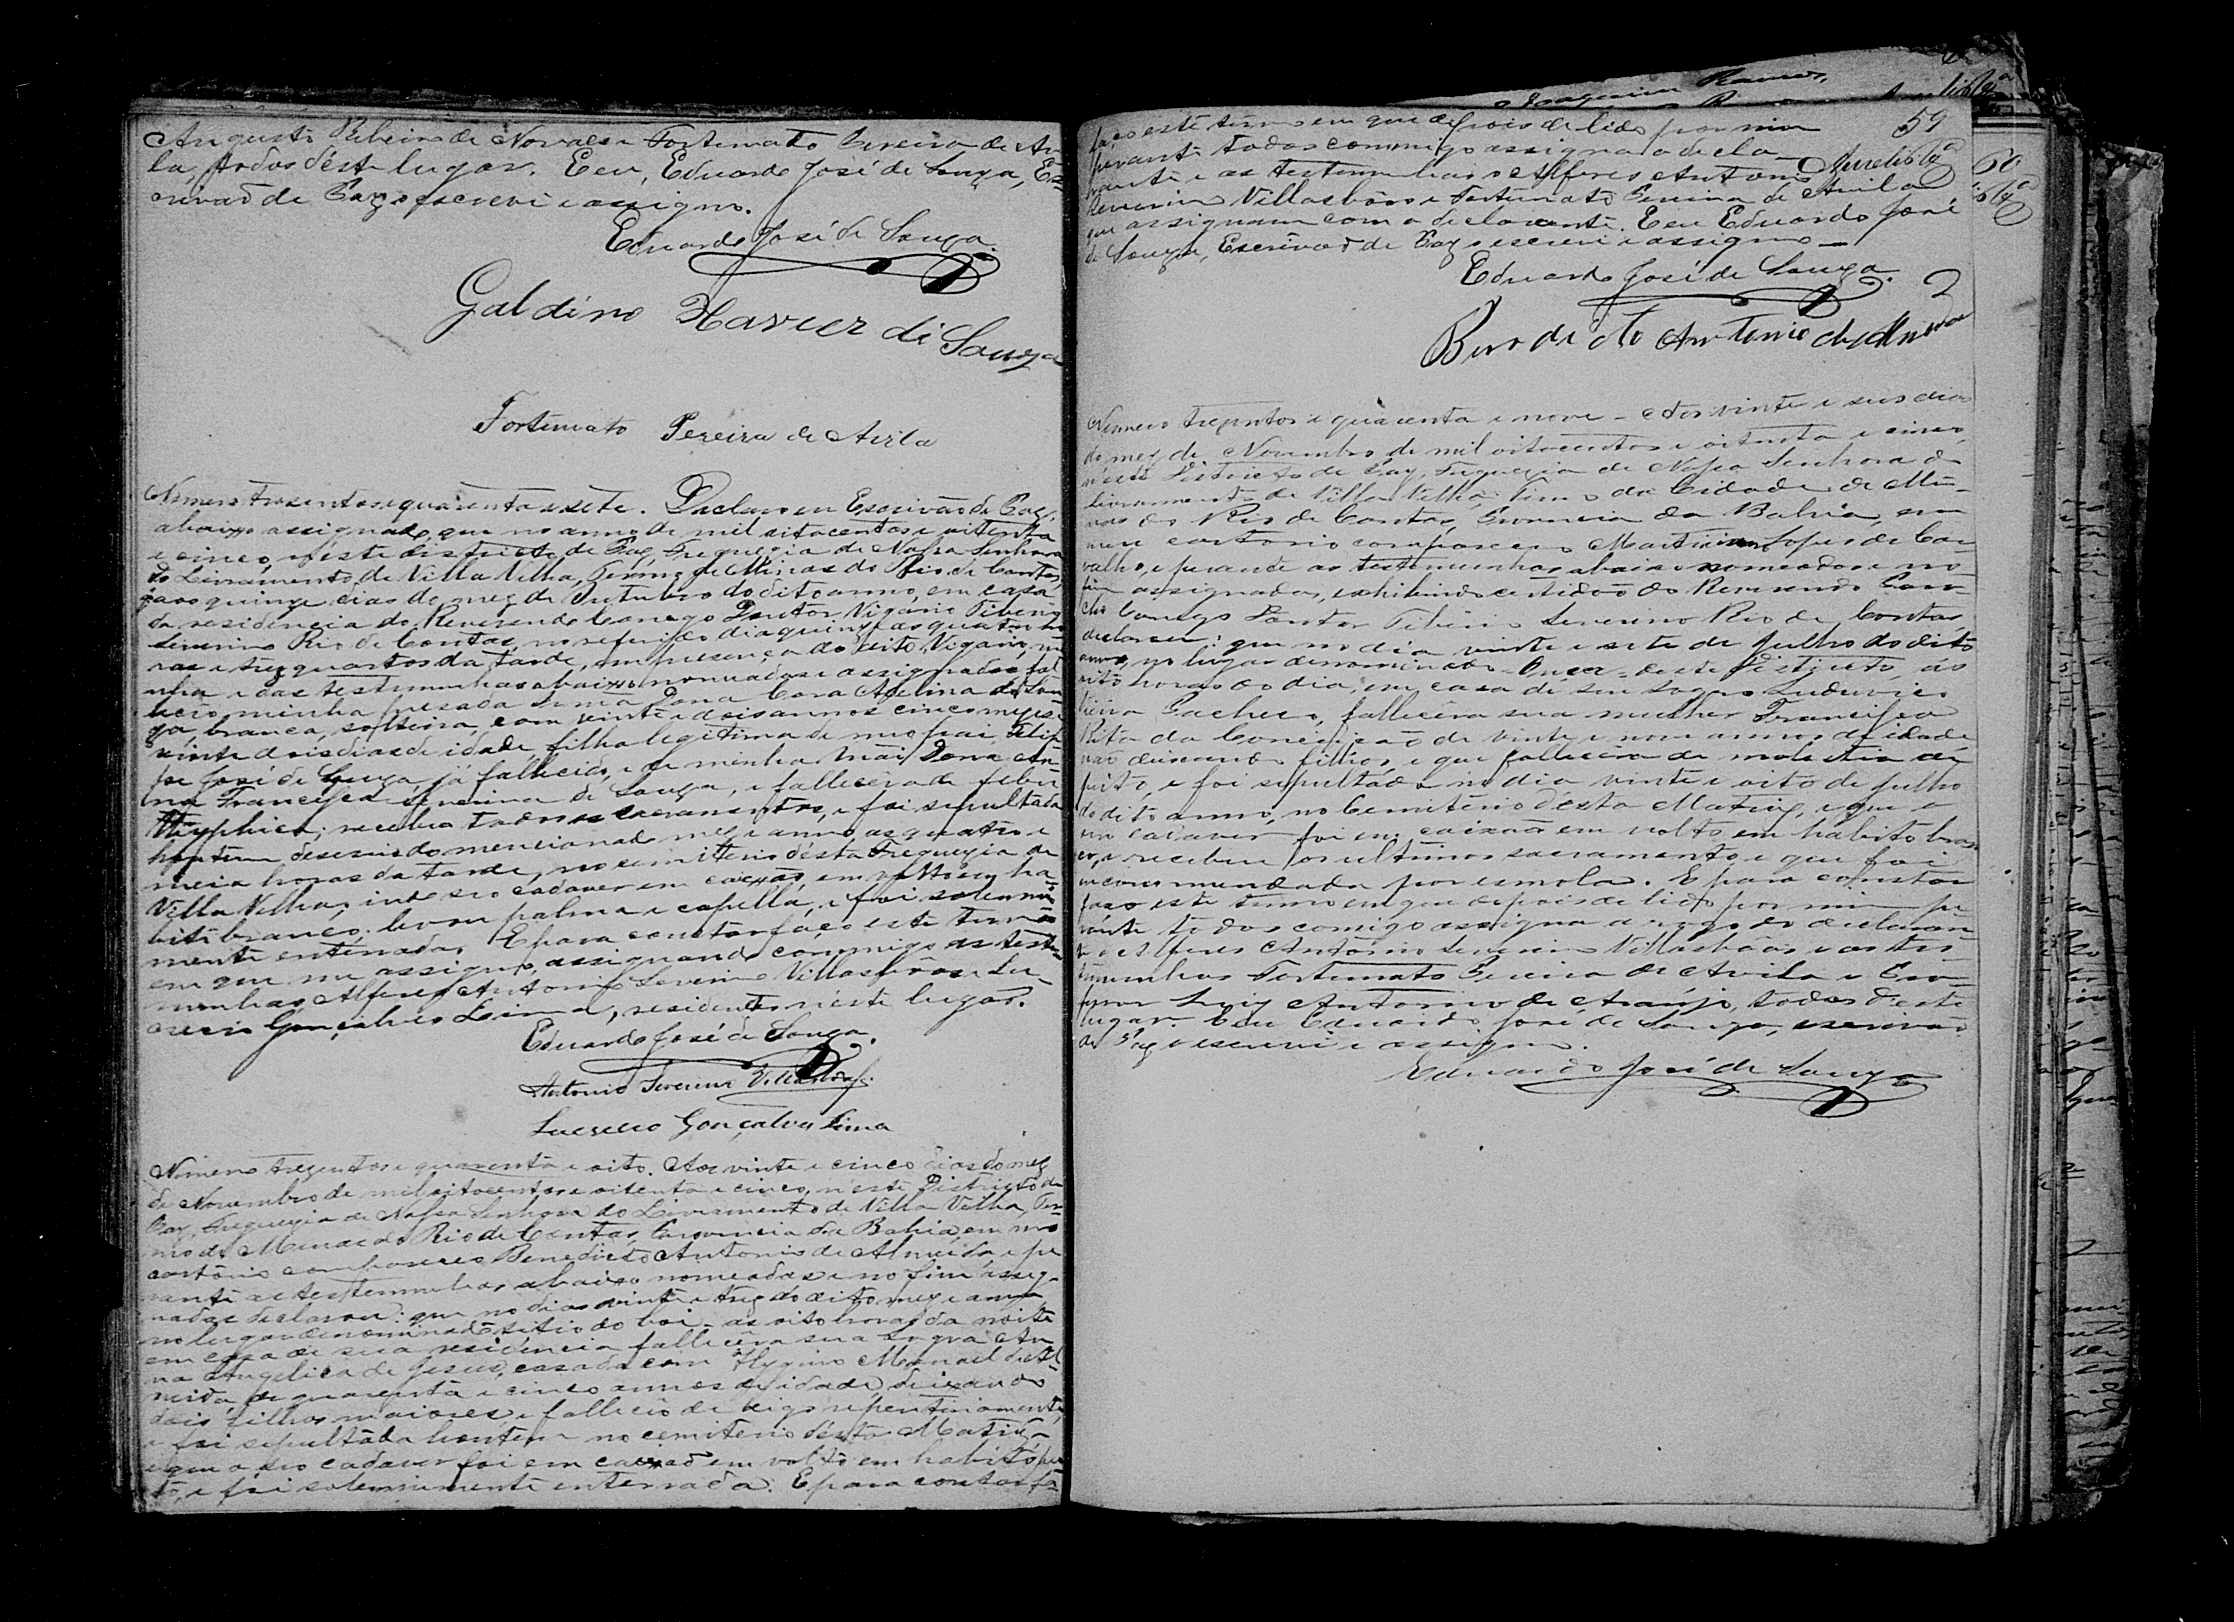 Augusto Ribeiro de Novaes e Fortunato Pereira de Avi
la, todos d'este lugar. E eu, Eduardo José de Souza, Es-
crivaõ de Paz o escrevi e assigno.
Eduardo José de Souza.
Galdino Xavier di Souza
Fortunato Pereira de Avila
Numero tresentos e quarenta e sete. Declaro eu Escrivão de Paz,
abaixo assignado, que no anno de mil oitocentos e oitenta
e cinco, n'este districto de Paz, Freguezia de Nossa Senhora
do Livramento de Villa Velha, Termo de Minas do Rio de Contas,
aos quinze dias do mez de Outubro do dito anno, em casa
da residencia do Reverendo Conego Doutor Vigario Tiberio
Severino Rio de Contas, no referido dia quinze as quatro ho
ras e trez quartos da tarde, em presença do dito Vigario, mi
nha e das testemunhas abaixo nomeadas e assignadas fal
leceo minha presada irmã Dona Cora Adelina de Sou
za, branca, solteira, com vinte e dois annos cinco mezes e
vinte dois dias de idade, filha legitima de meo pai, Felip
pe José de Souza, já fallecido, e de minha Mãi Dona An
na Francisca Severina de Souza, e fallecêra de febre
thyphica; recebeo todos os sacramentos, e foi sepultada
hontem deseseis do mencionado mez e anno as quatro e
meia horas da tarde, no cemiterio désta Freguezia de
Villa Velha, indo seo cadaver em caixão, em volto em ha
bito branco, com palma e capella, e foi solemne
mente enterrada. E para constar faço este termo
em que me assigno, assignando commigo as teste
munhas, Alferes Antonio Severino Villasbôas e Lu
crecio Gonçalves Lima, residentes n'este lugar.
Eduardo José de Souza.
Antonio Severino Villasbôas.
Lucrecio Gonçalves Lima
Numero trezentos e quarenta e oito. Aos vinte e cinco dias do mez
de Novembro de mil oitocentos e oitenta e cinco, n'este Districto de
Paz, Freguezia de Nossa Senhora do Livramento de Villa Velha, Ter
mo de Minas do Rio de Contas, Provincia da Bahia, em meo
cartorio compareceo Benedicto Antonio de Almeida, e pe
rante as testemunhas abaixo nomeadas e no fim assig-
nadas declarou: que no dia vinte e trez do dito mez e anno
no lugar denominado sitio do boi, as oito horas da noite
em casa de sua residencia fallecêra sua sogra An
na Angelica de Jesus, casada com Hygino Manoel de Al
meida, de quarenta e cinco annos de idade, deixando
dois filhos maiores, e falleceo de repentinamente,
e foi sepultada hontem no cemiterio désta Matriz
e que o seo cadaver foi em caixaõ em volto em habito pre
to, e foi solemnimente enterrada. E para constar fa-
59
Aurelio
ço este termo em que depois de lido por mim
perante todos commigo assigna o decla-
rante e as testemunhas o Alferes Antonio
Severino Villasbôas e Fortunato Pereira de Avila
que assignam com o declarante. E eu Eduardo José
de Souza, Escrivaõ de Paz o escrevi e assigno
Eduardo José de Souza.
Benedicto Antonio de Almeida
Numero trezentos e quarenta e nove - Aos vinte e seis dias
do mez de Novembro de mil oitocentos e oitenta e cinco,
n'este Districto de Paz, Freguezia de Nossa Senhora do
Livramento de Villa Velha, Termo da Cidade de Mi-
nas do Rio de Contas, Provincia da Bahia, em
meu cartorio compareceo Lopes de Car
valho, e perante as testemunhas abaixo nomeadas e no
fim assignadas, exhibindo certidaõ do Reverendo Paro-
cho Conego Doutor Tiberio Severino Rio de Contas,
declarou: que no dia vinte e sete de Julho do dito
anno, no lugar denominado deste Districto, ás
oito horas do dia, em casa de seu sogro Ludovico
Pacheco, fallecêra sua mulher Francisca
Rita da Conceiçaõ de vinte e nove annos de idade
naõ deixando filhos, e que fallecêra de molestia de
peito, e foi sepultada no dia vinte e oito de Julho
do dito anno, no Cemiterio désta Matriz, e que o
seo cadaver foi em caixaõ em volto em habito bran
co, e recebeu os ultimos sacramentos e que foi
encommendada por esmola. E para constar
faço este termo em que depois de lido por mim pe
rante todos comigo assigna a rogo do declaran
te o Alferes Antonio Severino Villasbôas, e as tes
temunhas Fortunato Pereira de Avila e Pro-
fessor Luiz Antonio de Araujo, todos d'este
lugar. E eu Eduardo José de Souza, escrivaõ
de Paz o escrevi e assigno.
Eduardo José de Souza
60